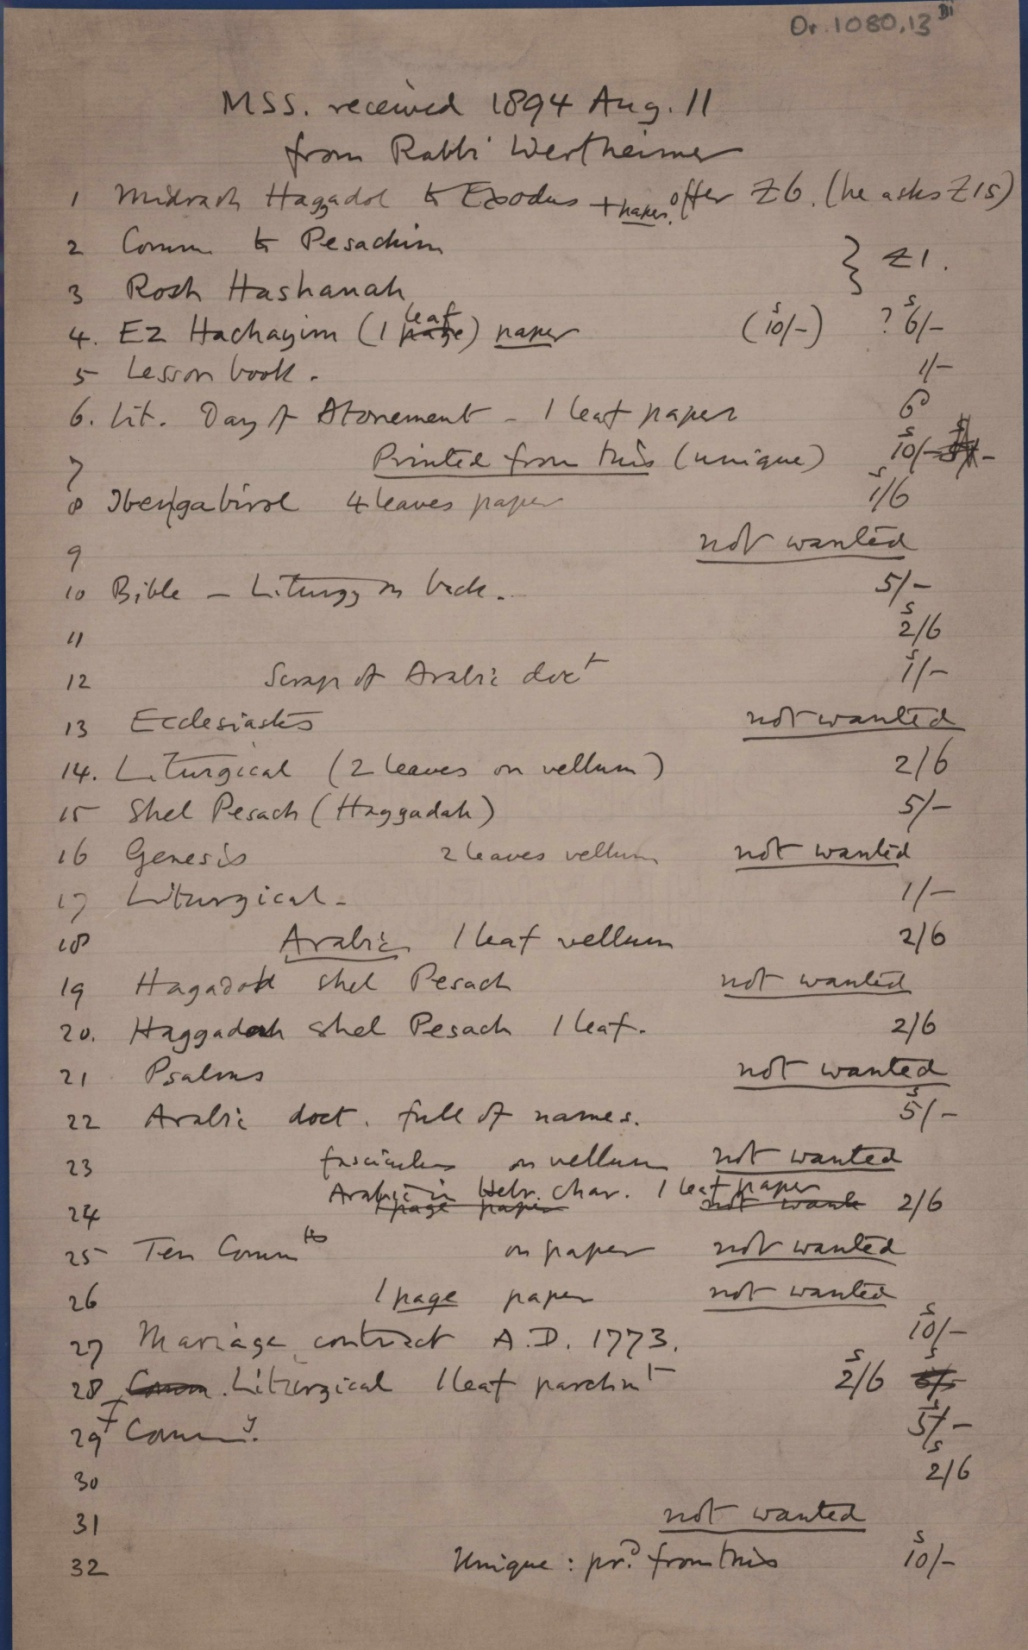 Or.1080.13 iii
MSS. received 1894 Aug. 11
from Rabbi Wertheimer
1 Midrash Haggadol to Exodus + paper. offer £6. (he asks £15)
2 Comm to Pesachim } £1.
3 Rosh Hashanah
4. Ez Hachayim (1 page leaf) paper (10s/-) ? 6s/-
5 Lesson book. 1/-
6. Lit. Day of Atonement - 1 leaf paper 6d
7 Printed from this (unique) 10s/-
8 Ibengabirol 4 leaves paper 1s/6
9 not wanted
10 Bible - Liturgy on back. 5/-
11 2s/6
12 Scrap of Arabic doct 1s/-
13 Ecclesiastes not wanted
14. Liturgical (2 leaves on vellum) 2/6
15 Shel Pesach (Haggadah) 5/-
16 Genesis 2 leaves vellum not wanted
17 Liturgical - 1/-
18 Arabic 1 leaf vellum 2/6
19 Hagadah shel Pesach not wanted
20. Haggadah shel Pesach 1 leaf. 2/6
21 Psalms not wanted
22 Arabic doct. full of names. 5s/-
23 fasciculus on vellum not wanted
Arabic in Hebr. char. 1 leaf paper
24 1 page paper not want 2/6
25 Ten Commts on paper not wanted
26 1 page paper not wanted
27 Mariage contract A.D. 1773. 10s/-
28 Comm. Liturgical 1 leaf parchmt 2s/6
29 Commy. 5s/-
30 2s/6
31 not wanted
32 Unique : prd from this 10s/-